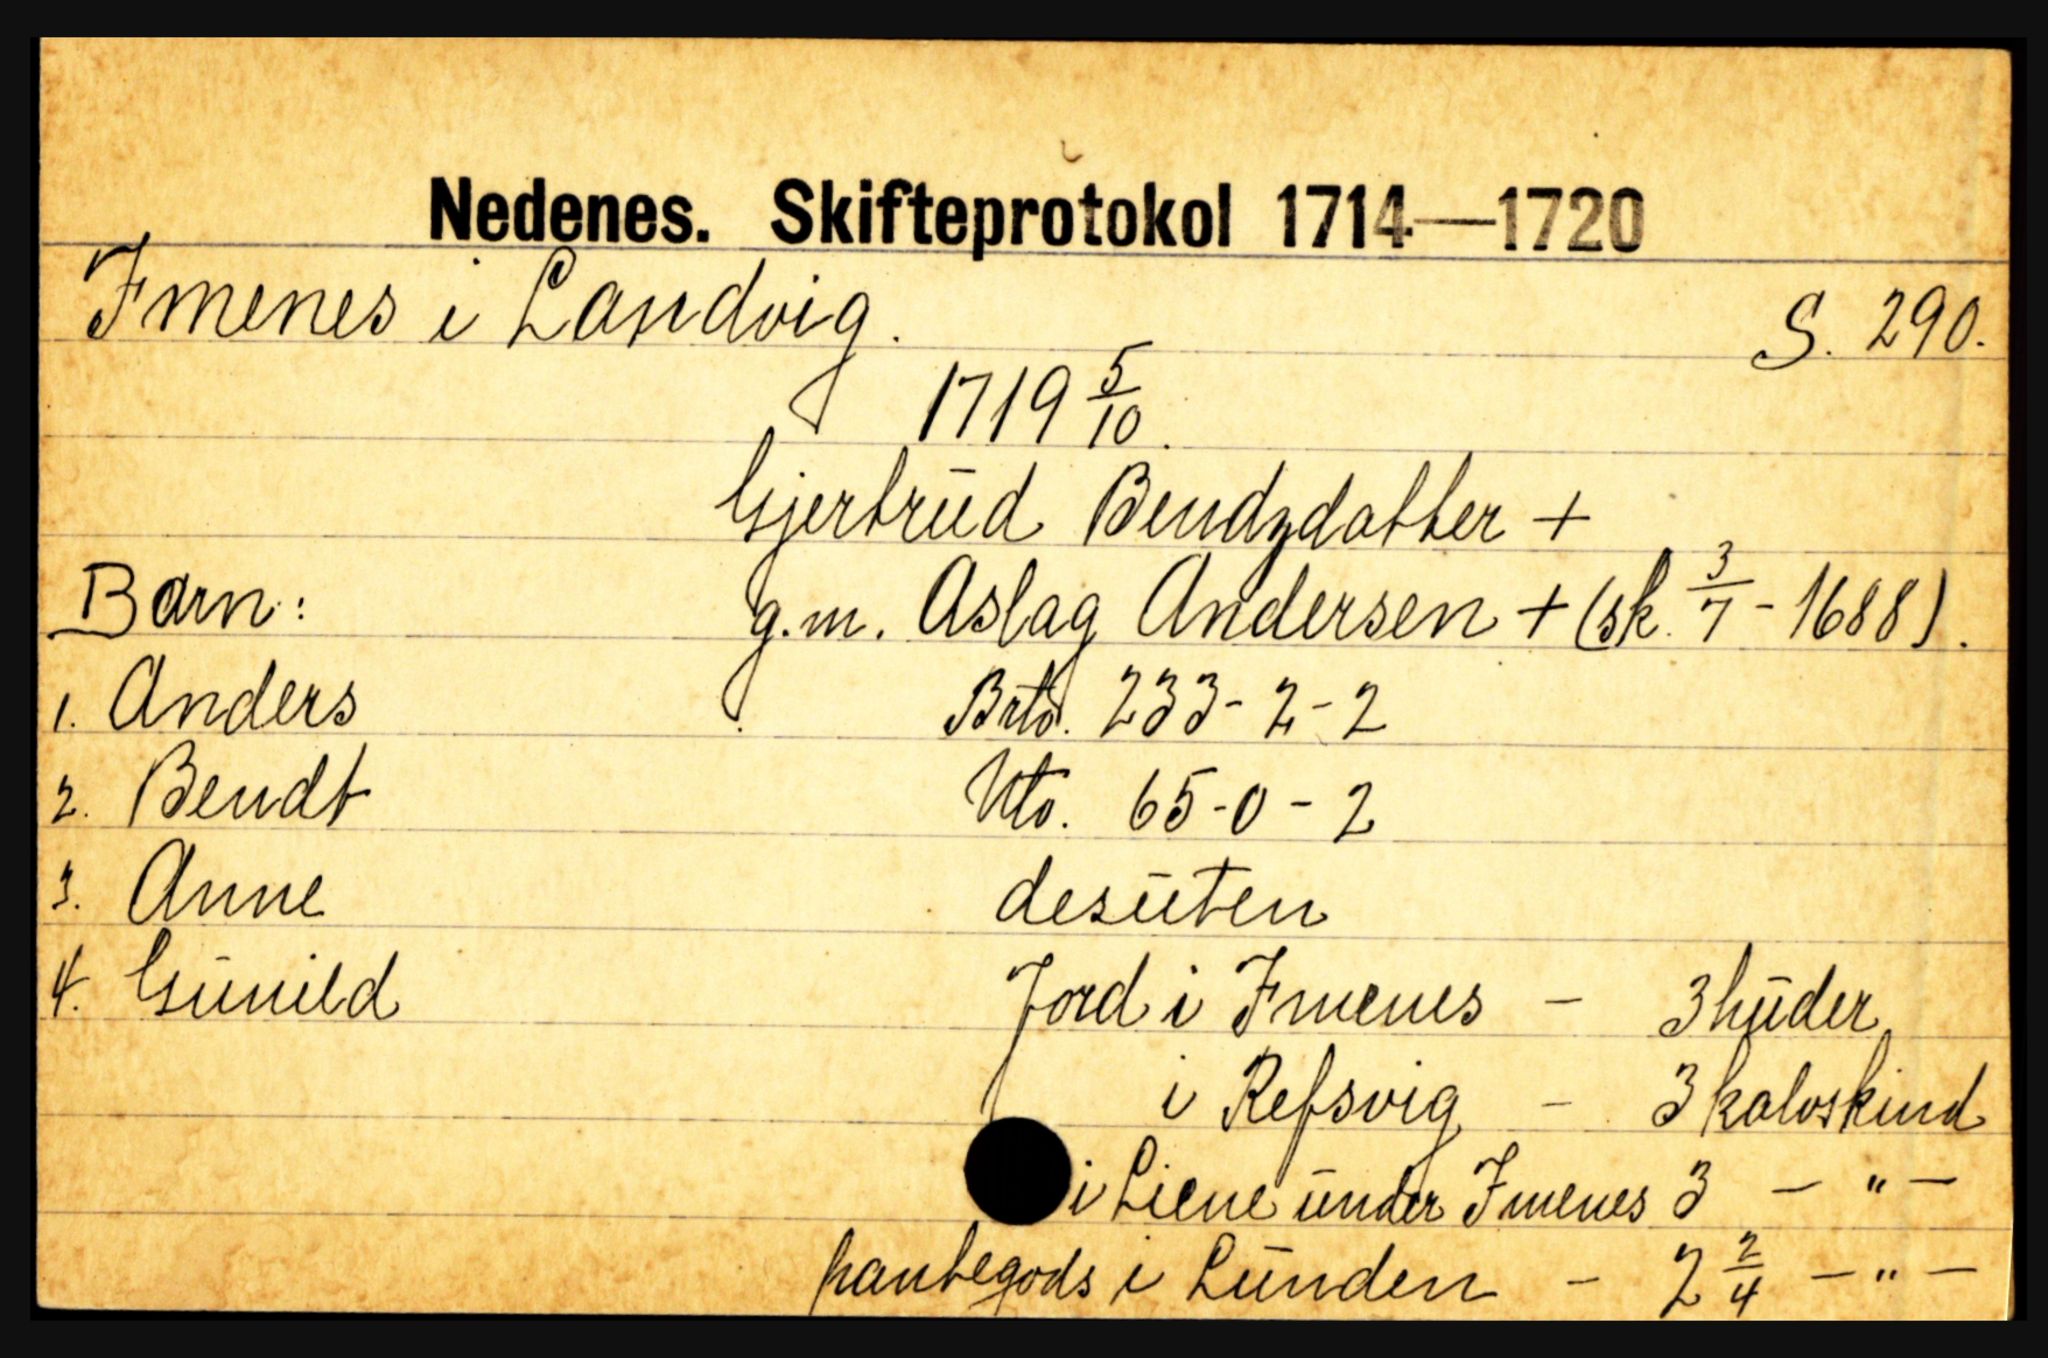 Nedenes. Skifteprotokol 1714—1720
Imenes i Landvig. S. 290.
1719 5/10.
Gjertrud Bendzdatter +
Barn: g.m. Aslag Andersen + (sk. 3/7 - 1688).
1. Anders Brto. 233-2-2
2. Bendt Nto. 65-0-2
3. Anne desuten
4. Gunild Jord i Imenes - 3 huder
i Refsvig - 3 kalvskind
i Liene under Imenes 3 - " -
pantegods i Lunden - 2 2/4 - " -